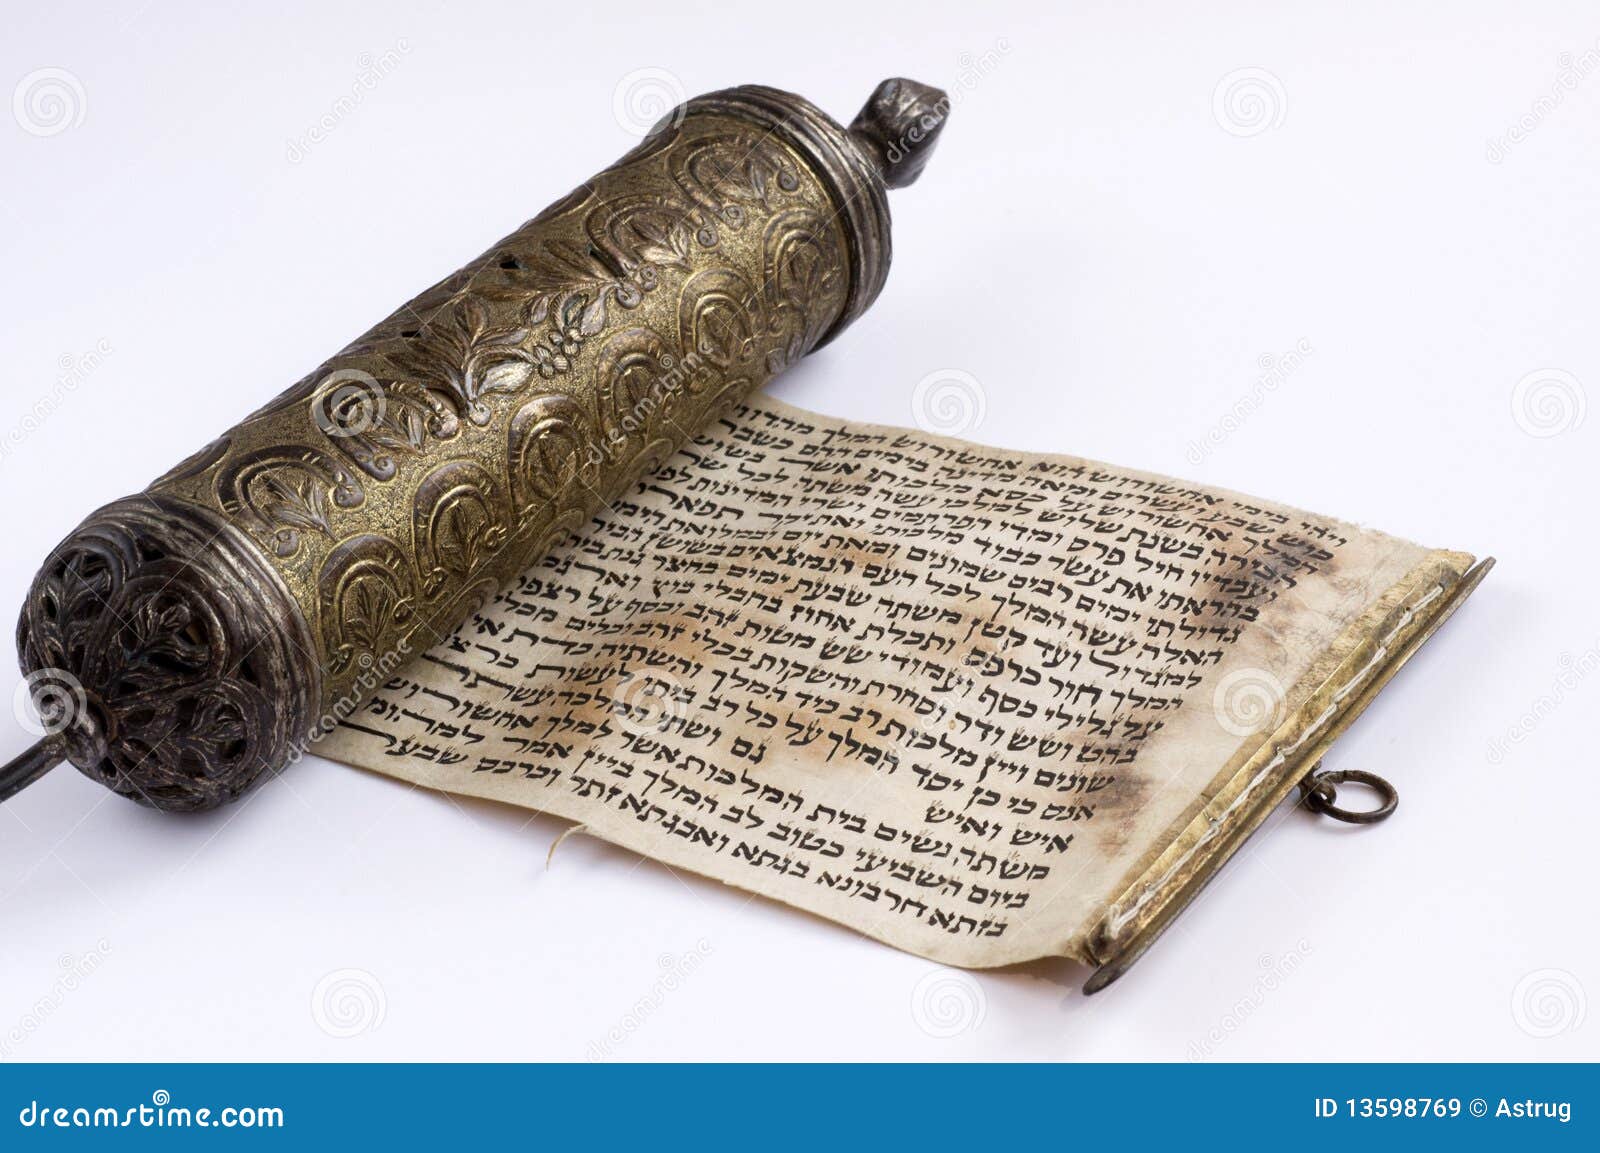 ויהי בימי אחשורוש הוא אחשורוש המלך מהדו
כוש שבע ועשרים ומאה מדינה בימים ההם כשבת
המלך אחשורוש על כסא מלכותו אשר בשוש
הבירה בשנת שלוש למלכו עשה משתה לכל שר
ועבדיו חיל פרס ומדי הפרתמים ושרי המדינות לפנ
בהראתו את עשר כבוד מלכותו ואת יקר תפארת
גדולתו ימים רבים שמונים ומאת יום ובמלואת הימי
האלה עשה המלך לכל העם הנמצאים בשושן הביר
למגדול ועד קטן משתה שבעת ימים בחצר גנת בי
המלך חור כרפס ותכלת אחוז בחבלי בוץ וארגמ
על גלילי כסף ועמודי שש מטות זהב וכסף על רצפ
בהט ושש ודר וסחרת והשקות בכלי זהב וכלים מכלי
שונים ויין מלכות רב כיד המלך והשתיה כדת אי
אנס כי כן יסד המלך על כל רב ביתו לעשות כרצ
איש ואיש גם ושתי המלכה עשתה
משתה נשים בית המלכות אשר למלך אחשורוש
ביום השביעי כטוב לב המלך ביין אמר למהומ
בזתא חרבונא בגתא ואבגתא זתר וכרכס שבעת
dreamstime.com
ID 13598769 © Astrug